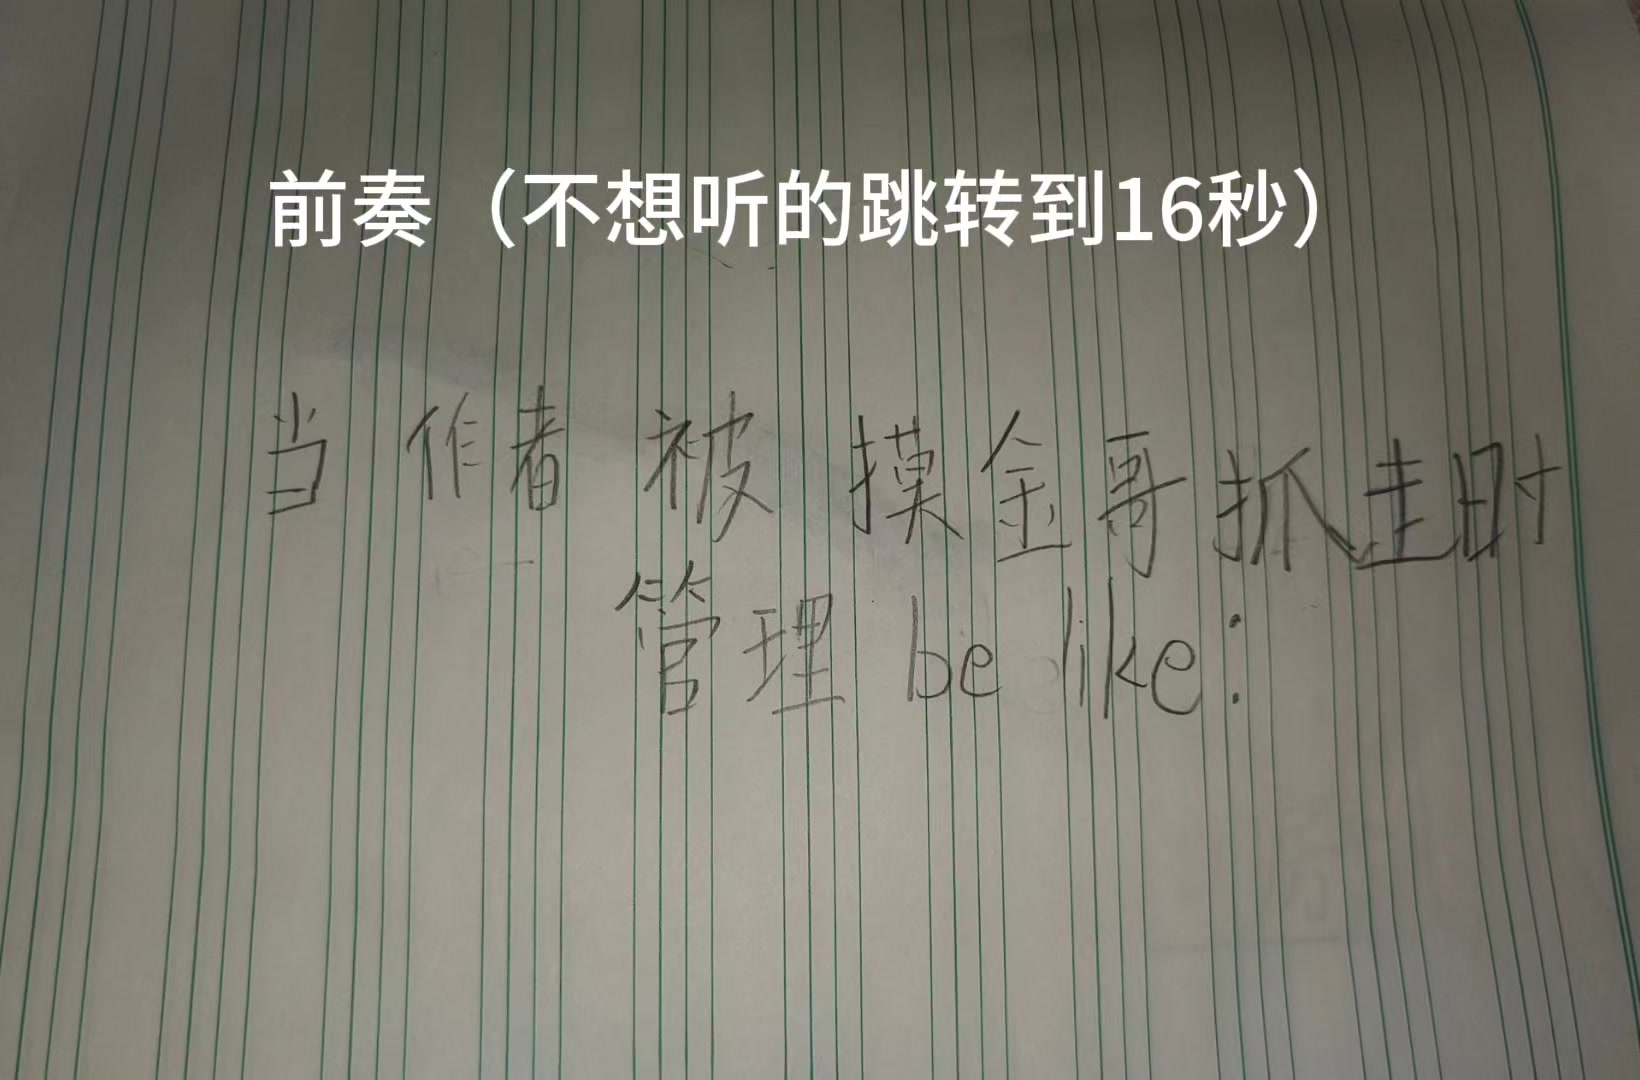 前奏（不想听的跳转到16秒）
当作者被摸金哥抓走时
管理 be like：